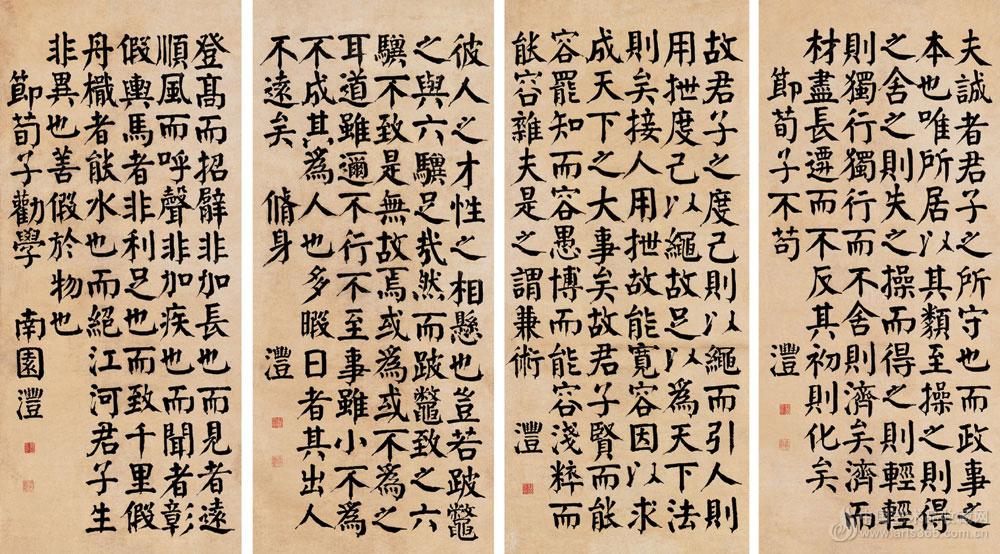 夫誠者君子之所守也而政事之
本也唯所居以其類至操之則得
之舍之則失之操而得之則輕輕
則獨行獨行而不舍則濟矣濟而
材盡長遷而不反其初則化矣
節荀子不苟 灃
故君子之度己則以繩而引人則
用抴度己以繩故足以為天下法
則矣接人用抴故能寬容因以求
成天下之大事矣故君子賢而能
容罷知而容愚博而能容淺粹而
能容雜夫是之謂兼術 灃
彼人之才性之相懸也豈若跛鼈
之與六驥足哉然而跛鼈致之六
驥不致是無故焉或為或不為之
耳道雖邇不行不至事雖小不為
不成其為人也多暇日者其出人
不遠矣 脩身 灃
登髙而招臂非加長也而見者遠
順風而呼聲非加疾也而聞者彰
假輿馬者非利足也而致千里假
舟檝者能水也而絕江河君子生
非異也善假於物也
節荀子勸學 南園灃
www.arts365.com.cn